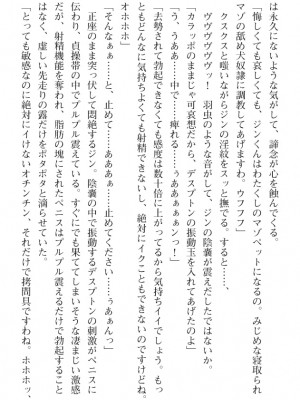 は永久にないような気がして、諦念が心を蝕んでくる。
「悔しくても哀しくても、ジンくんはわたくしのマゾペットになるの。みじめな寝取られ
マゾの舐め犬奴隷に調教してあげますわ。ウフフフ」
クスクスと嗤いながらジンの淫紋をスッと撫でる。すると……、
ヴヴヴヴヴヴッ！　羽虫のような音がして、ジンの陰嚢が震えだしたではないか。
「カラッポのままじゃ可哀想だから、デスプトンの振動玉を入れてあげたのよ」
「う、うああ……中で……痺れる……うぁあぁぁぁんっっ！」
「去勢されて勃起できなくても感度は数十倍に上がってるから気持ちイイでしょう。もっ
ともどんなに気持ちよくても射精できないし、絶対にイクこともできないのですけどね。
オホホホ」
「そんなぁぁ……と、止めて……くださいぃ……うぁぁぁっ」
正座のまま突っ伏して悶絶するジン。陰嚢の中で振動するデスプトンの刺激がペニスに
伝わり、貞操帯の中でブルブル震えている。すぐにでも果ててしまいそうな凄まじい激感
だが、射精機能を奪われ、脂肪の塊にされたペニスはブルブル震えるだけで勃起すること
はなく、虚しい先走りの露だけをポタポタと滴らせていた。
「とっても敏感なのに絶対にイけないオチンチン、それだけで拷問具ですわね。ホホホッ、